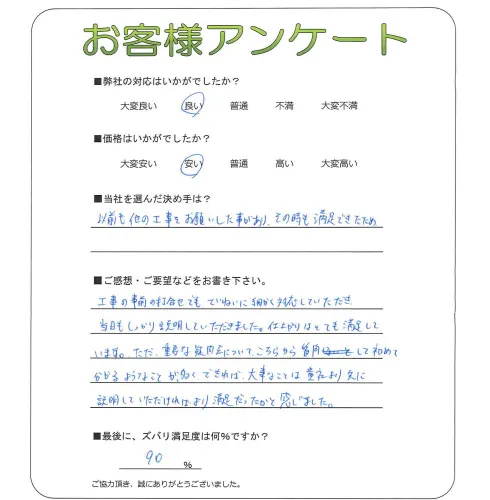 お客様アンケート
■弊社の対応はいかがでしたか?
大変良い 良い 普通 不満 大変不満
■価格はいかがでしたか?
大変安い 安い 普通 高い 大変高い
■当社を選んだ決め手は?
以前も他の工事をお願いした事があり、その時も満足できたため
■ご感想・ご要望などをお書き下さい。
工事の事前の打合せでもていねいに細かく対応していただき
当日もしっかり説明していただきました。仕上がりはとても満足して
います。ただ、重要な について、こちらから質問 して初めて
分かるようなことが多く できれば、大事なことは貴社より先に
説明していただければより満足だったかと感じました。
■最後に、ズバリ満足度は何%ですか?
90 %
ご協力頂き、誠にありがとうございました。